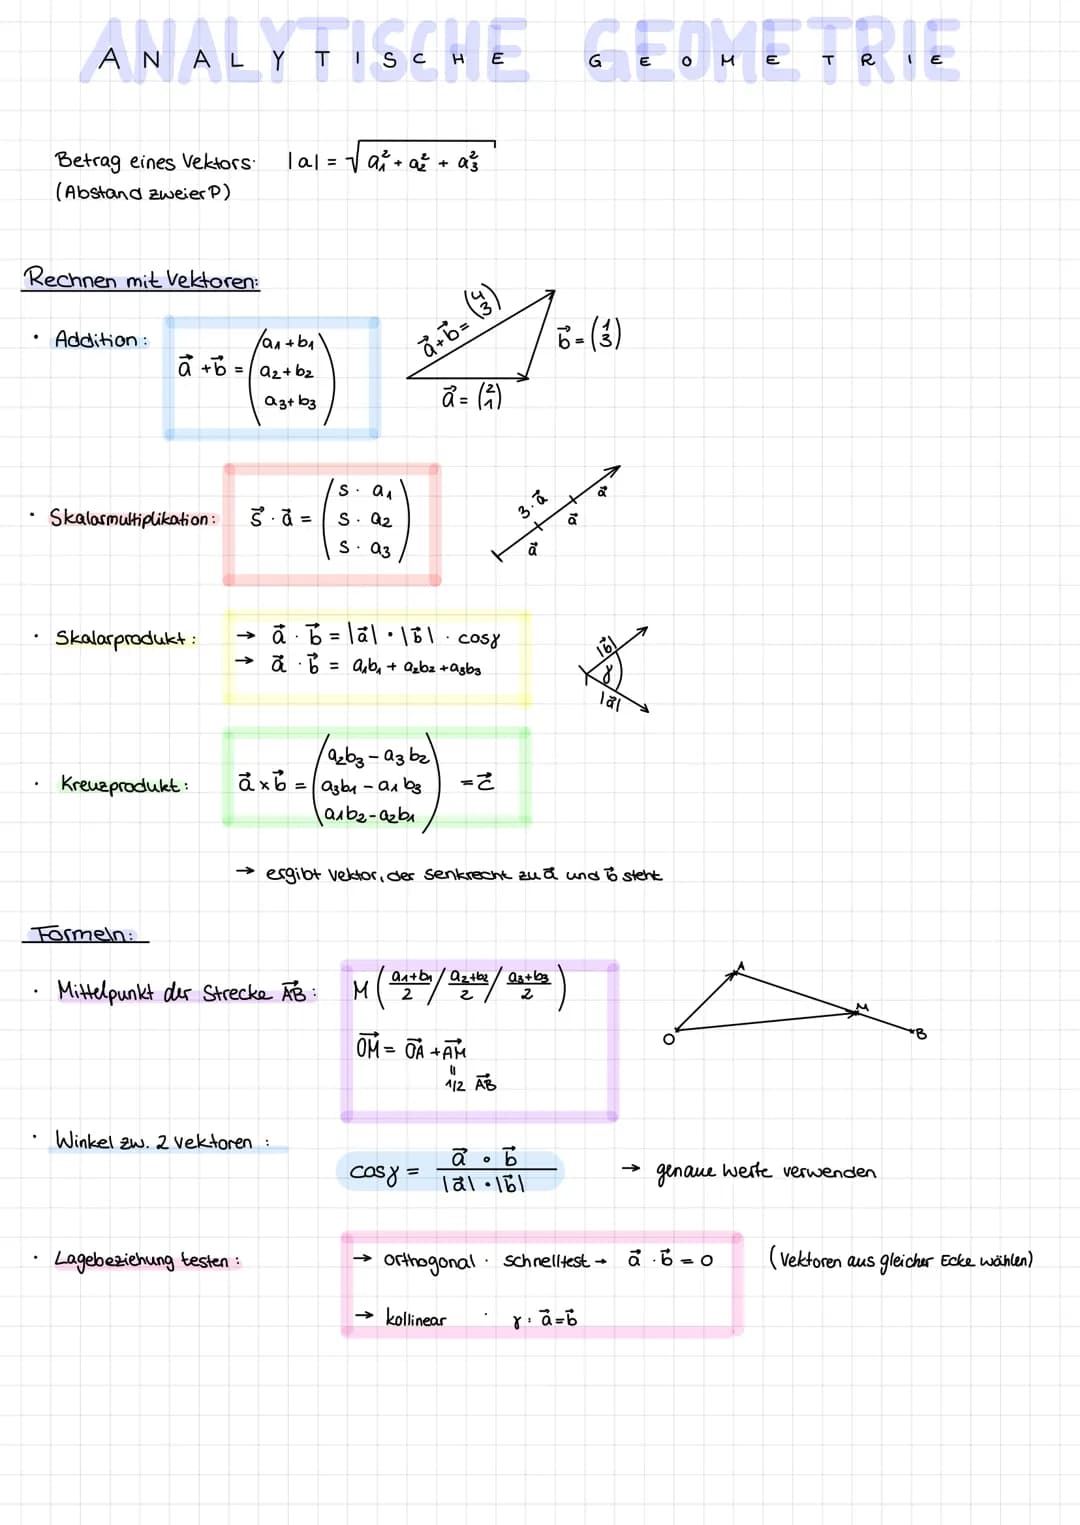 ANALYTISCHE GEOMETRIE
ANALYTISCHE GEOMETRIE
Betrag eines Vektors: |a| = √a₁² + a₂² + a₃²
(Abstand zweier P)
Rechnen mit Vektoren:
• Addition: a⃗ + b⃗ = (a₁+b₁ a₂+b₂ a₃+b₃)
a⃗+b⃗ = (4 3)
b⃗ = (1 3)
a⃗ = (2 1)
• Skalarmultiplikation: s⃗ · a⃗ = (s · a₁ s · a₂ s · a₃)
3·a⃗
a⃗ a⃗ a⃗
• Skalarprodukt: → a⃗ · b⃗ = |a⃗| · |b⃗| · cosγ
→ a⃗ · b⃗ = a₁b₁ + a₂b₂ + a₃b₃
|b⃗|
γ
|a⃗|
• Kreuzprodukt: a⃗ × b⃗ = (a₂b₃ - a₃b₂ a₃b₁ - a₁b₃ a₁b₂ - a₂b₁) = c⃗
→ ergibt Vektor, der senkrecht zu a⃗ und b⃗ steht
Formeln:
• Mittelpunkt der Strecke A⃗B⃗: M (a₁+b₁/2 / a₂+b₂/2 / a₃+b₃/2)
O⃗M⃗ = O⃗A⃗ + A⃗M⃗
"
1/2 A⃗B⃗
A
M
O
B
• Winkel zw. 2 Vektoren:
cosγ = a⃗ ∘ b⃗ / |a⃗| · |b⃗| → genaue Werte verwenden
• Lagebeziehung testen: → orthogonal · schnelltest → a⃗ · b⃗ = 0 (Vektoren aus gleicher Ecke wählen)
→ kollinear · γ: a⃗ = b⃗